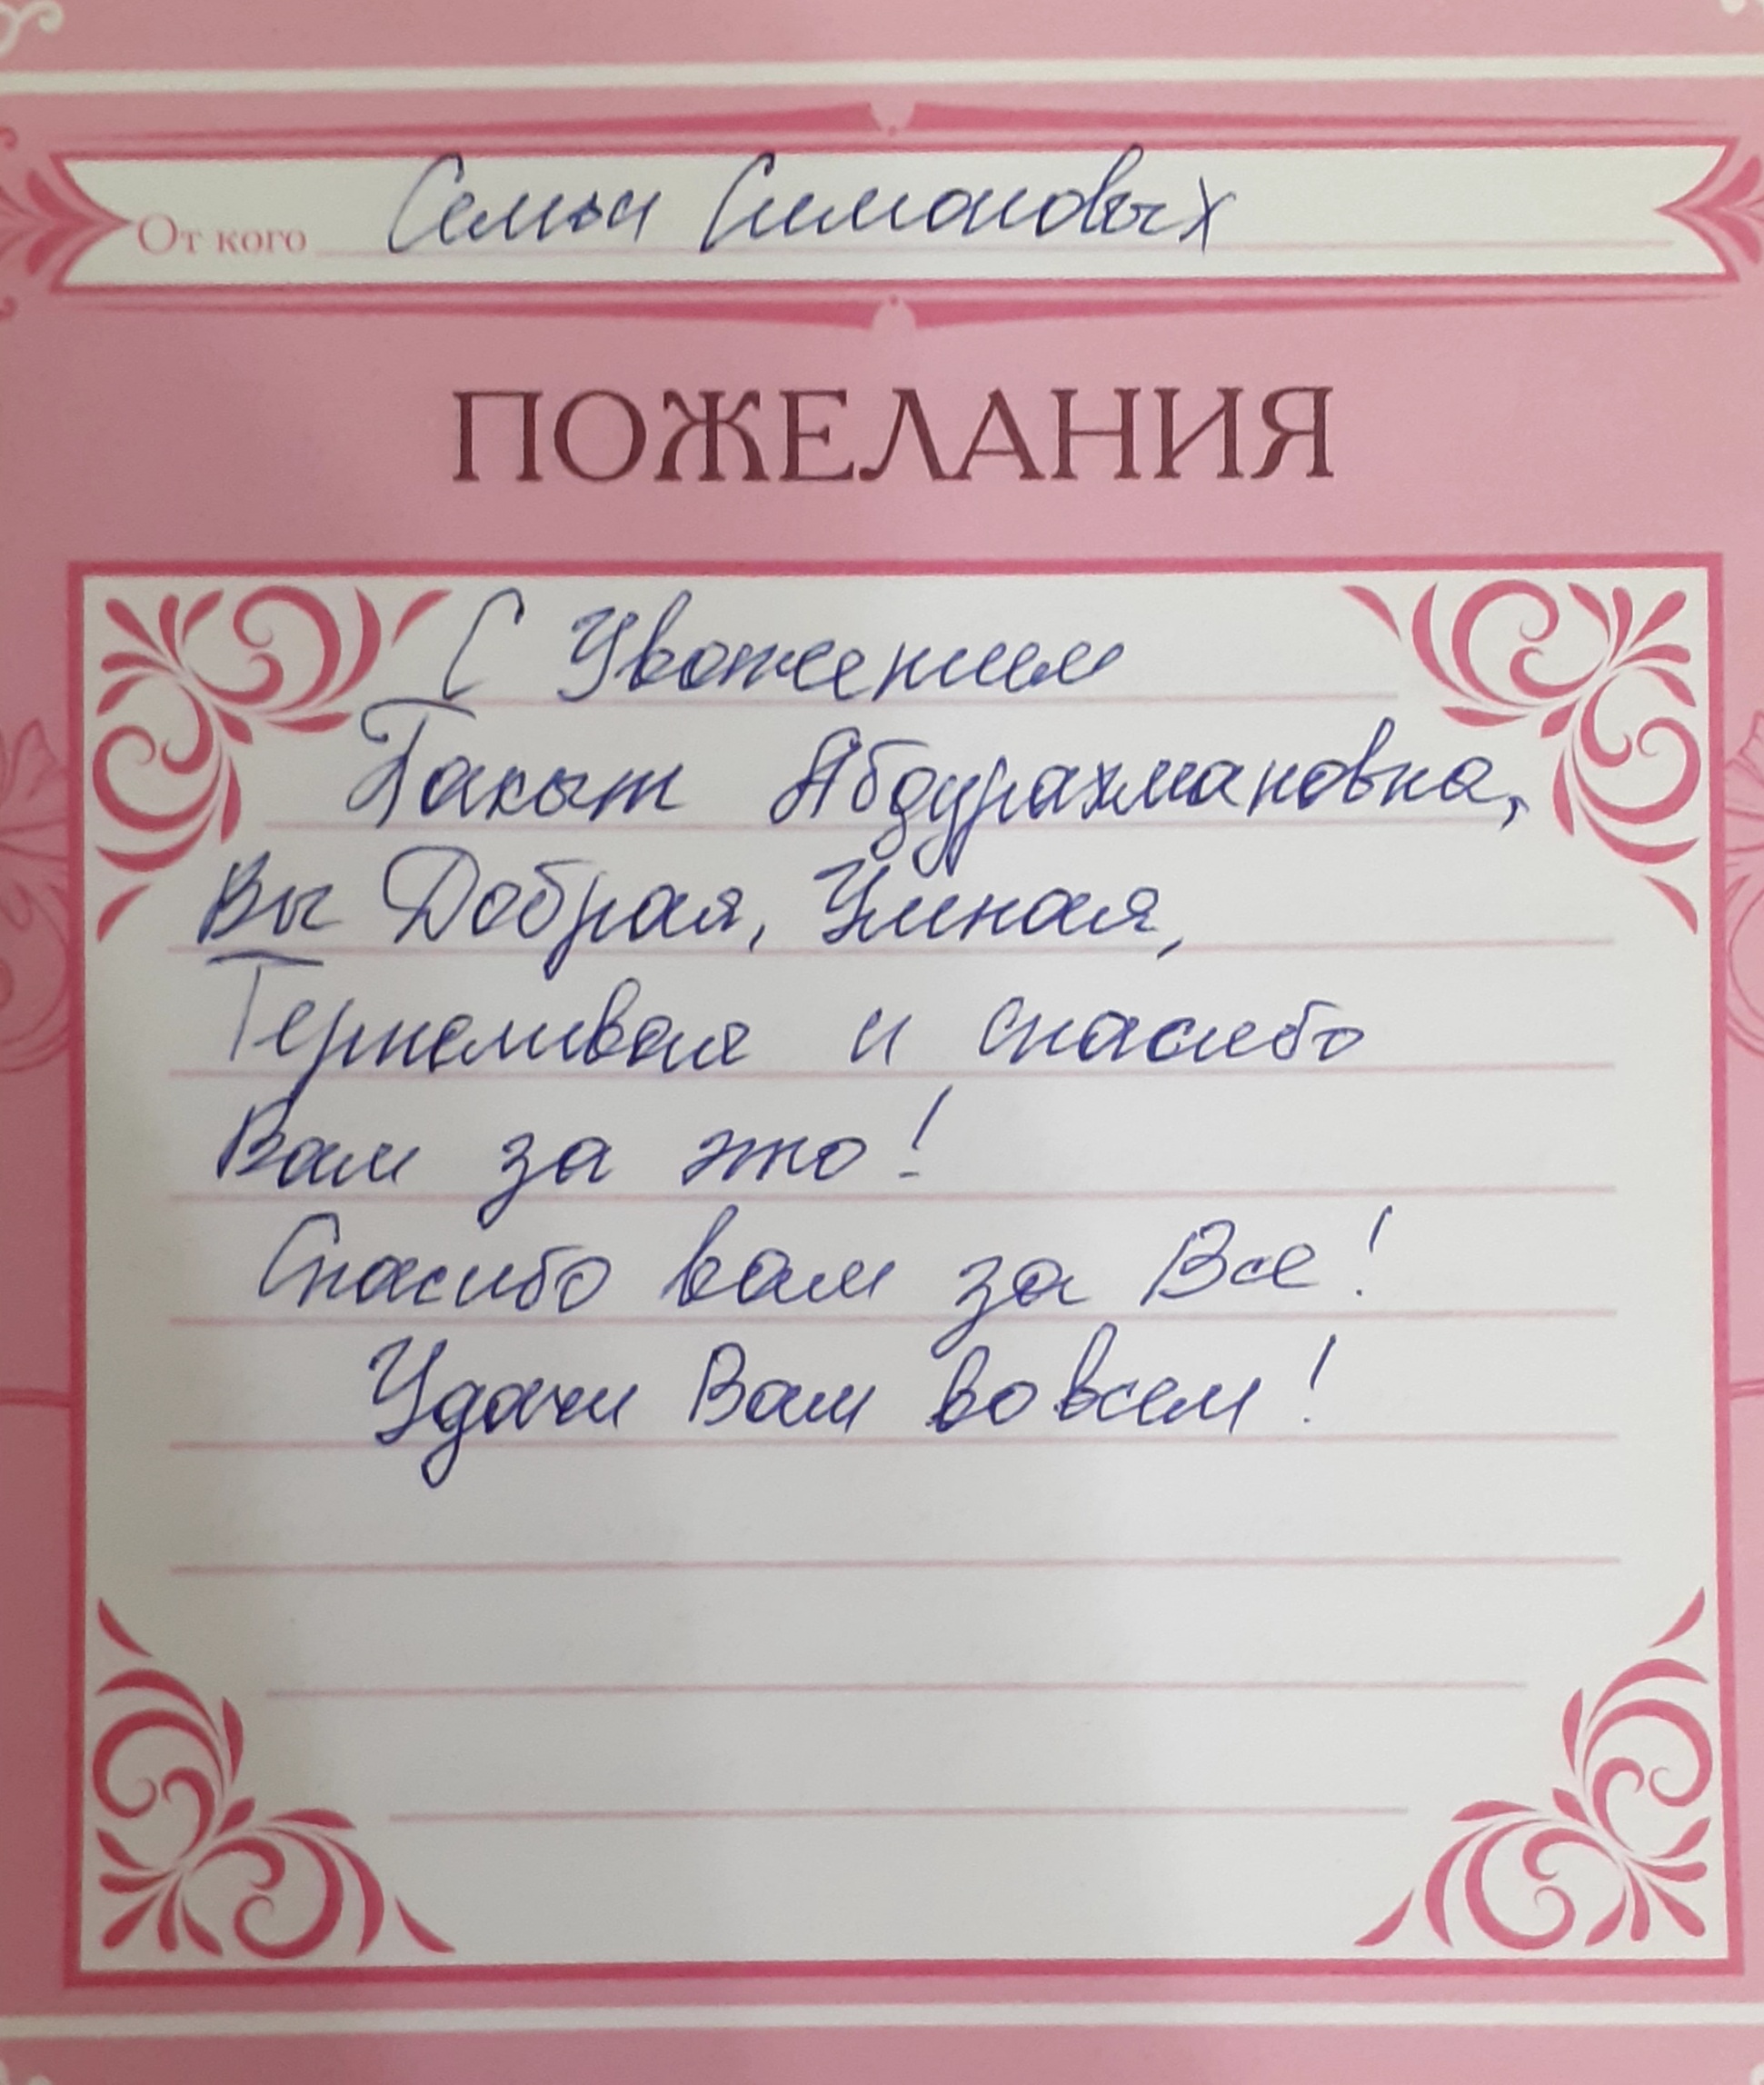 От кого Семьи Симоновых
ПОЖЕЛАНИЯ
С Уважением
Бакыт Абдурахмановна,
Вы Добрая, Умная,
Терпеливая и спасибо
Вам за это!
Спасибо вам за Все!
Удачи Вам во всем!